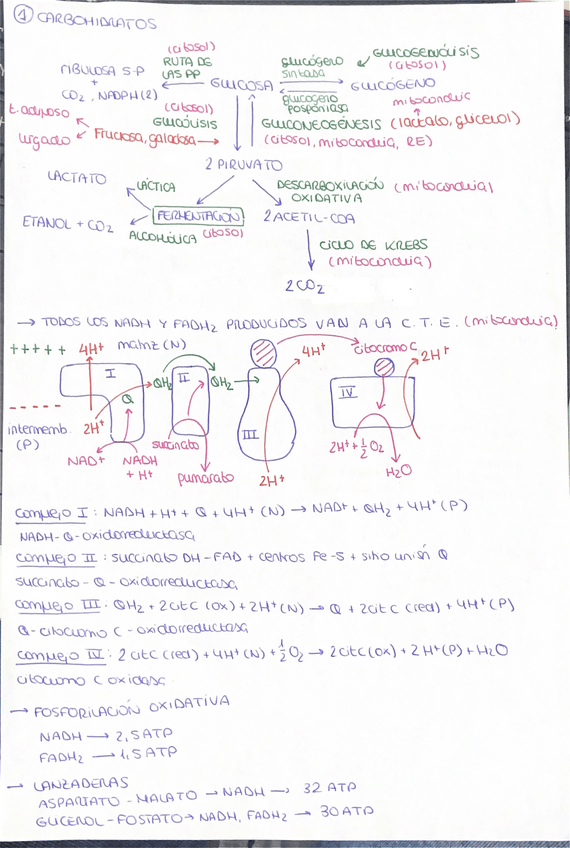 ① CARBOHIDRATOS
(citosol) GLUCOGENÓLISIS
RIBULOSA 5-P RUTA DE glucógeno (citosol)
+ LAS PP GLUCOSA sintasa GLUCÓGENO
CO2, NADPH(2) glucógeno
(citosol) mitocondria
t. adiposo GLUCÓLISIS GLUCONEOGÉNESIS (lactato, glicerol)
hígado Fructosa, galactosa (citosol, mitocondria, RE)
2 PIRUVATO
LACTATO LÁCTICA DESCARBOXILACIÓN (mitocondria)
OXIDATIVA
FERMENTACIÓN 2 ACETIL-COA
ETANOL + CO2 ALCOHÓLICA (citosol)
CICLO DE KREBS
(mitocondria)
2 CO2
→ TODOS LOS NADH Y FADH2 PRODUCIDOS VAN A LA C.T.E. (mitocondria)
+++++ 4H+ matriz (N) 4H+ citocromo C 2H+
I QH2 II QH2
Q IV
-----
intermemb. 2H+ III 2H+ + ½ O2
(P) succinato
NAD+ NADH H2O
+ H+ pumarato 2H+
Complejo I: NADH + H+ + Q + 4H+ (N) → NAD+ + QH2 + 4H+ (P)
NADH-Q-oxidorreductasa
Complejo II: succinato DH-FAD + centros Fe-S + sitio unión Q
succinato-Q-oxidorreductasa
Complejo III. QH2 + 2 cit C (ox) + 2H+ (N) → Q + 2 cit C (red) + 4H+ (P)
Q-citocromo C-oxidorreductasa
Complejo IV: 2 cit C (red) + 4H+ (N) + ½ O2 → 2 cit C (ox) + 2 H+ (P) + H2O
citocromo C oxidasa.
→ FOSFORILACIÓN OXIDATIVA
NADH → 2,5 ATP
FADH2 → 1,5 ATP
→ LANZADERAS
ASPARTATO-MALATO → NADH → 32 ATP
GLICEROL-FOSTATO → NADH, FADH2 → 30 ATP